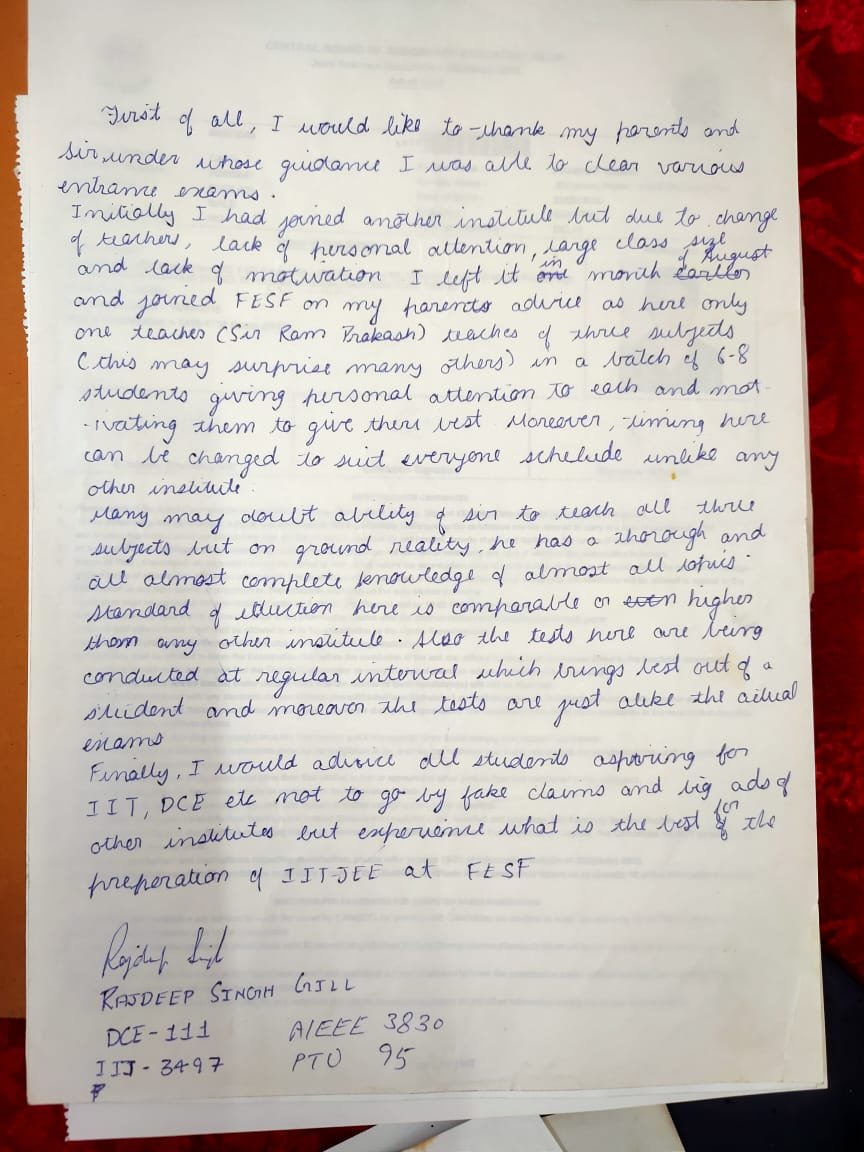 First of all, I would like to thank my parents and
sir under whose guidance I was able to clear various
entrance exams.
Initially I had joined another institute but due to change
of teachers, lack of personal attention, large class size
and lack of motivation I left it in month of August
and joined FESF on my parents advice as here only
one teaches (Sir Ram Prakash) teaches of three subjects
(this may surprise many others) in a batch of 6-8
students giving personal attention to each and mot-
-ivating them to give there best Moreover, timing here
can be changed to suit everyone schelude unlike any
other institute.
Many may doubt ability of sir to teach all three
subjects but on ground reality, he has a thorough and
all almost complete knowledge of almost all topics.
Standard of eduction here is comparable or even higher
them any other institute. Also the tests here are being
conducted at regular interval which brings best out of a
student and moreover the tests are just alike the actual
exams
Finally, I would advice all students aspiring for
IIT, DCE etc not to go by fake claims and big ads of
other institutes but experience what is the best for the
preperation of IIT-JEE at FESF
Rajdeep Singh
RAJDEEP SINGH GILL
DCE-111 AIEEE 3830
IIT-3497 PTU 95